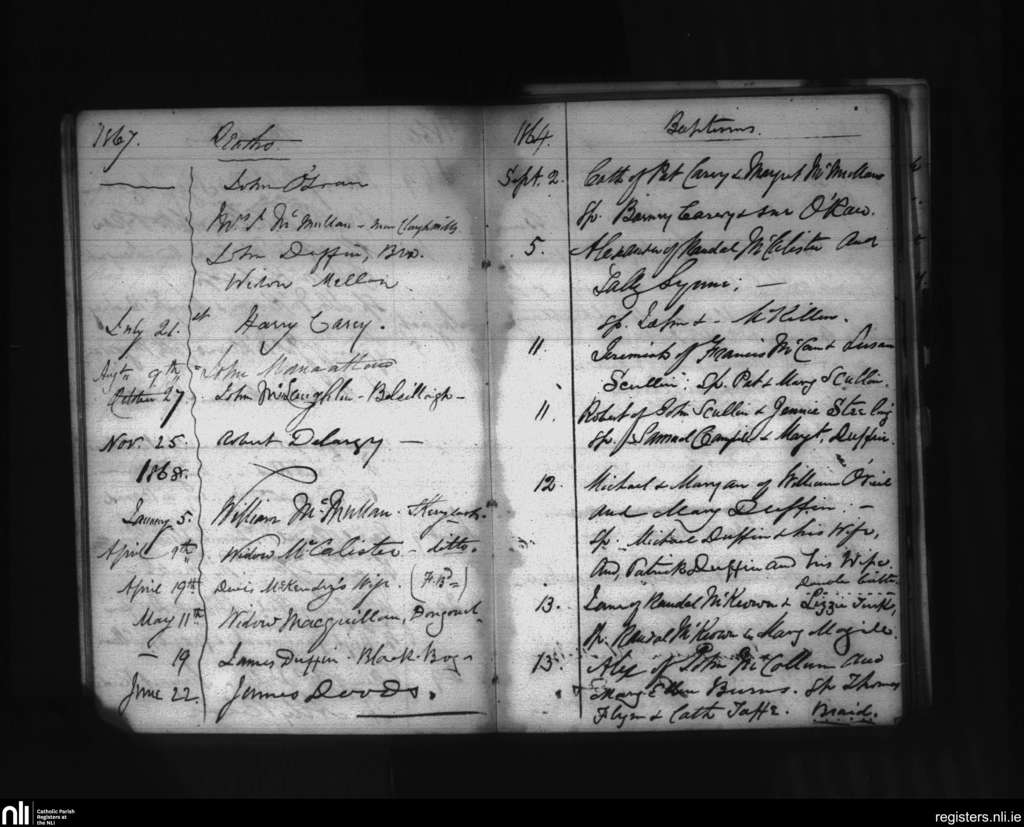 1867. Deaths
John O'Loan
Mrs J. McMullan -
John Duffin, Bro.
Widow Mellon.
July 21st Harry Carey.
Augt 9th John
October 27 John McLaughlin -
Nov. 25. Robert Delargy —
1868.
January 5. William McMullan.
April 9th Widow McCalister - ditto.
April 19th McKendry's Wife.
May 11th Widow Macquillan,
— 19 James Duffin. Black Bog -
June 22. James Dowds.
1864. Baptisms.
Sept. 2. Cath of Pat Carey & Margret McMullan
Sp. Barney Carey & O'Raw.
5. Alexander of Randal McCalister and
Sally Lynn; —
Sp. John & - McKillen.
11. Jeremiah of Francis McCan & Susan
Scullin: Sp. Pat & Mary Scullin.
11. Robert of John Scullin & Jennie Sterling
Sp. Samuel Campbell & Margt. Duffin.
12. Michael & Maryan of William O'Neil
and Mary Duffin: —
Sp. Michael Duffin & his Wife,
And, Patrick Duffin and his Wife.
13. Jane of Randal McKeown & Lizzie Turk,
Sp. Randal McKeown & Mary Magill.
13. Alex of John McCollum and
Mary Ellen Burns. Sp Thomas
Flynn & Cath Taffe. Braid.
nli Catholic Parish
Registers at
the NLI
registers.nli.ie